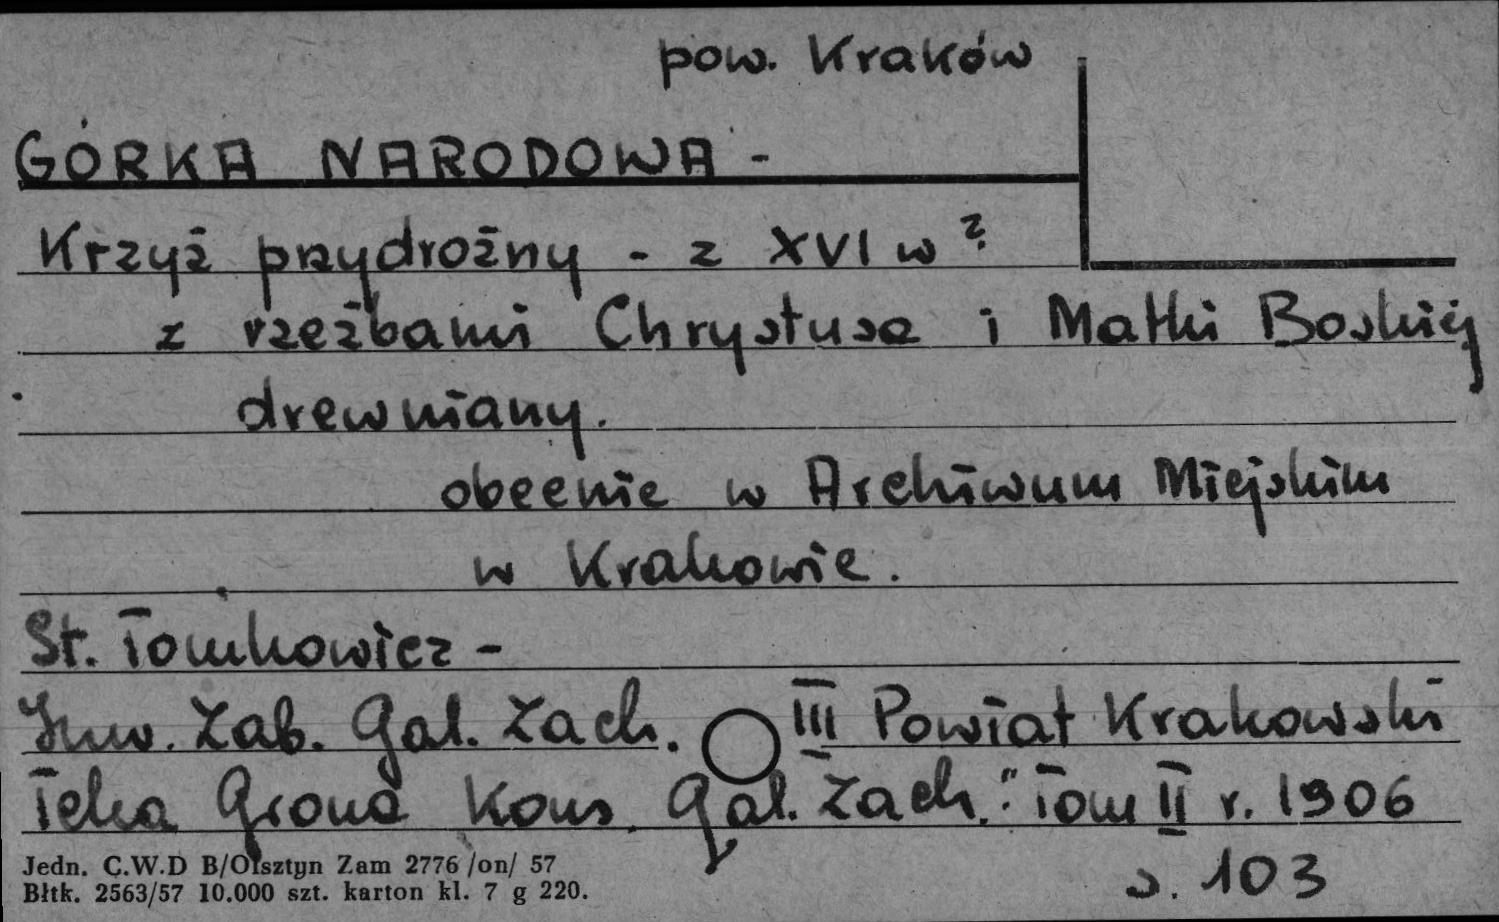 pow. Kraków
GÓRKA NARODOWA -
Krzyż przydrożny - z XVI w ?
z rzeźbami Chrystusa i Matki Boskiej
drewniany.
obecnie w Archiwum Miejskim
w Krakowie.
St. Tomkowicz -
Inw. Zab. Gal. Zach. III Powiat Krakowski
Teka Grona Kons. Gal. Zach." Tom II r. 1906
s. 103
Jedn. C.W.D B/Olsztyn Zam 2776 /on/ 57
Błtk. 2563/57 10.000 szt. karton kl. 7 g 220.